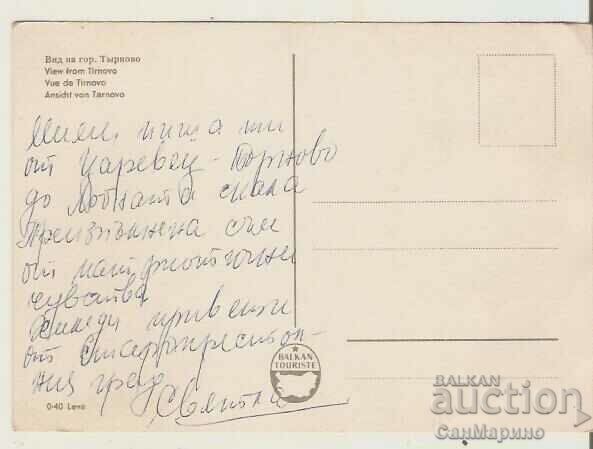 Вид на гор. Тырново
View from Tirnovo
Vue de Tirnovo
Ansicht von Tarnovo
Мили, пиша ти
от Царевец - Търново
до Лобната скала
Преизпълнена съм
от патриотични
чувства
Хиляди привети
от Старопрестол-
ния град
Светла
BALKAN
TOURISTE
0·40 Leva
BALKAN
auction
СанМарино